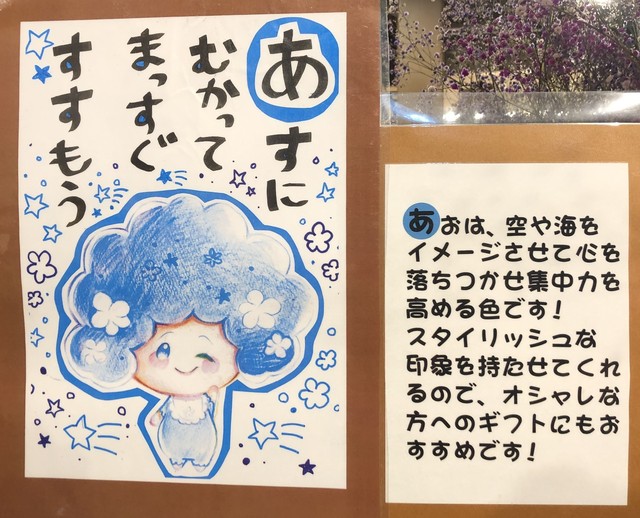 あすに
むかって
まっすぐ
すすもう
あおは、空や海を
イメージさせて心を
落ちつかせ集中力を
高める色です！
スタイリッシュな
印象を持たせてくれ
るので、オシャレな
方へのギフトにもお
すすめです！